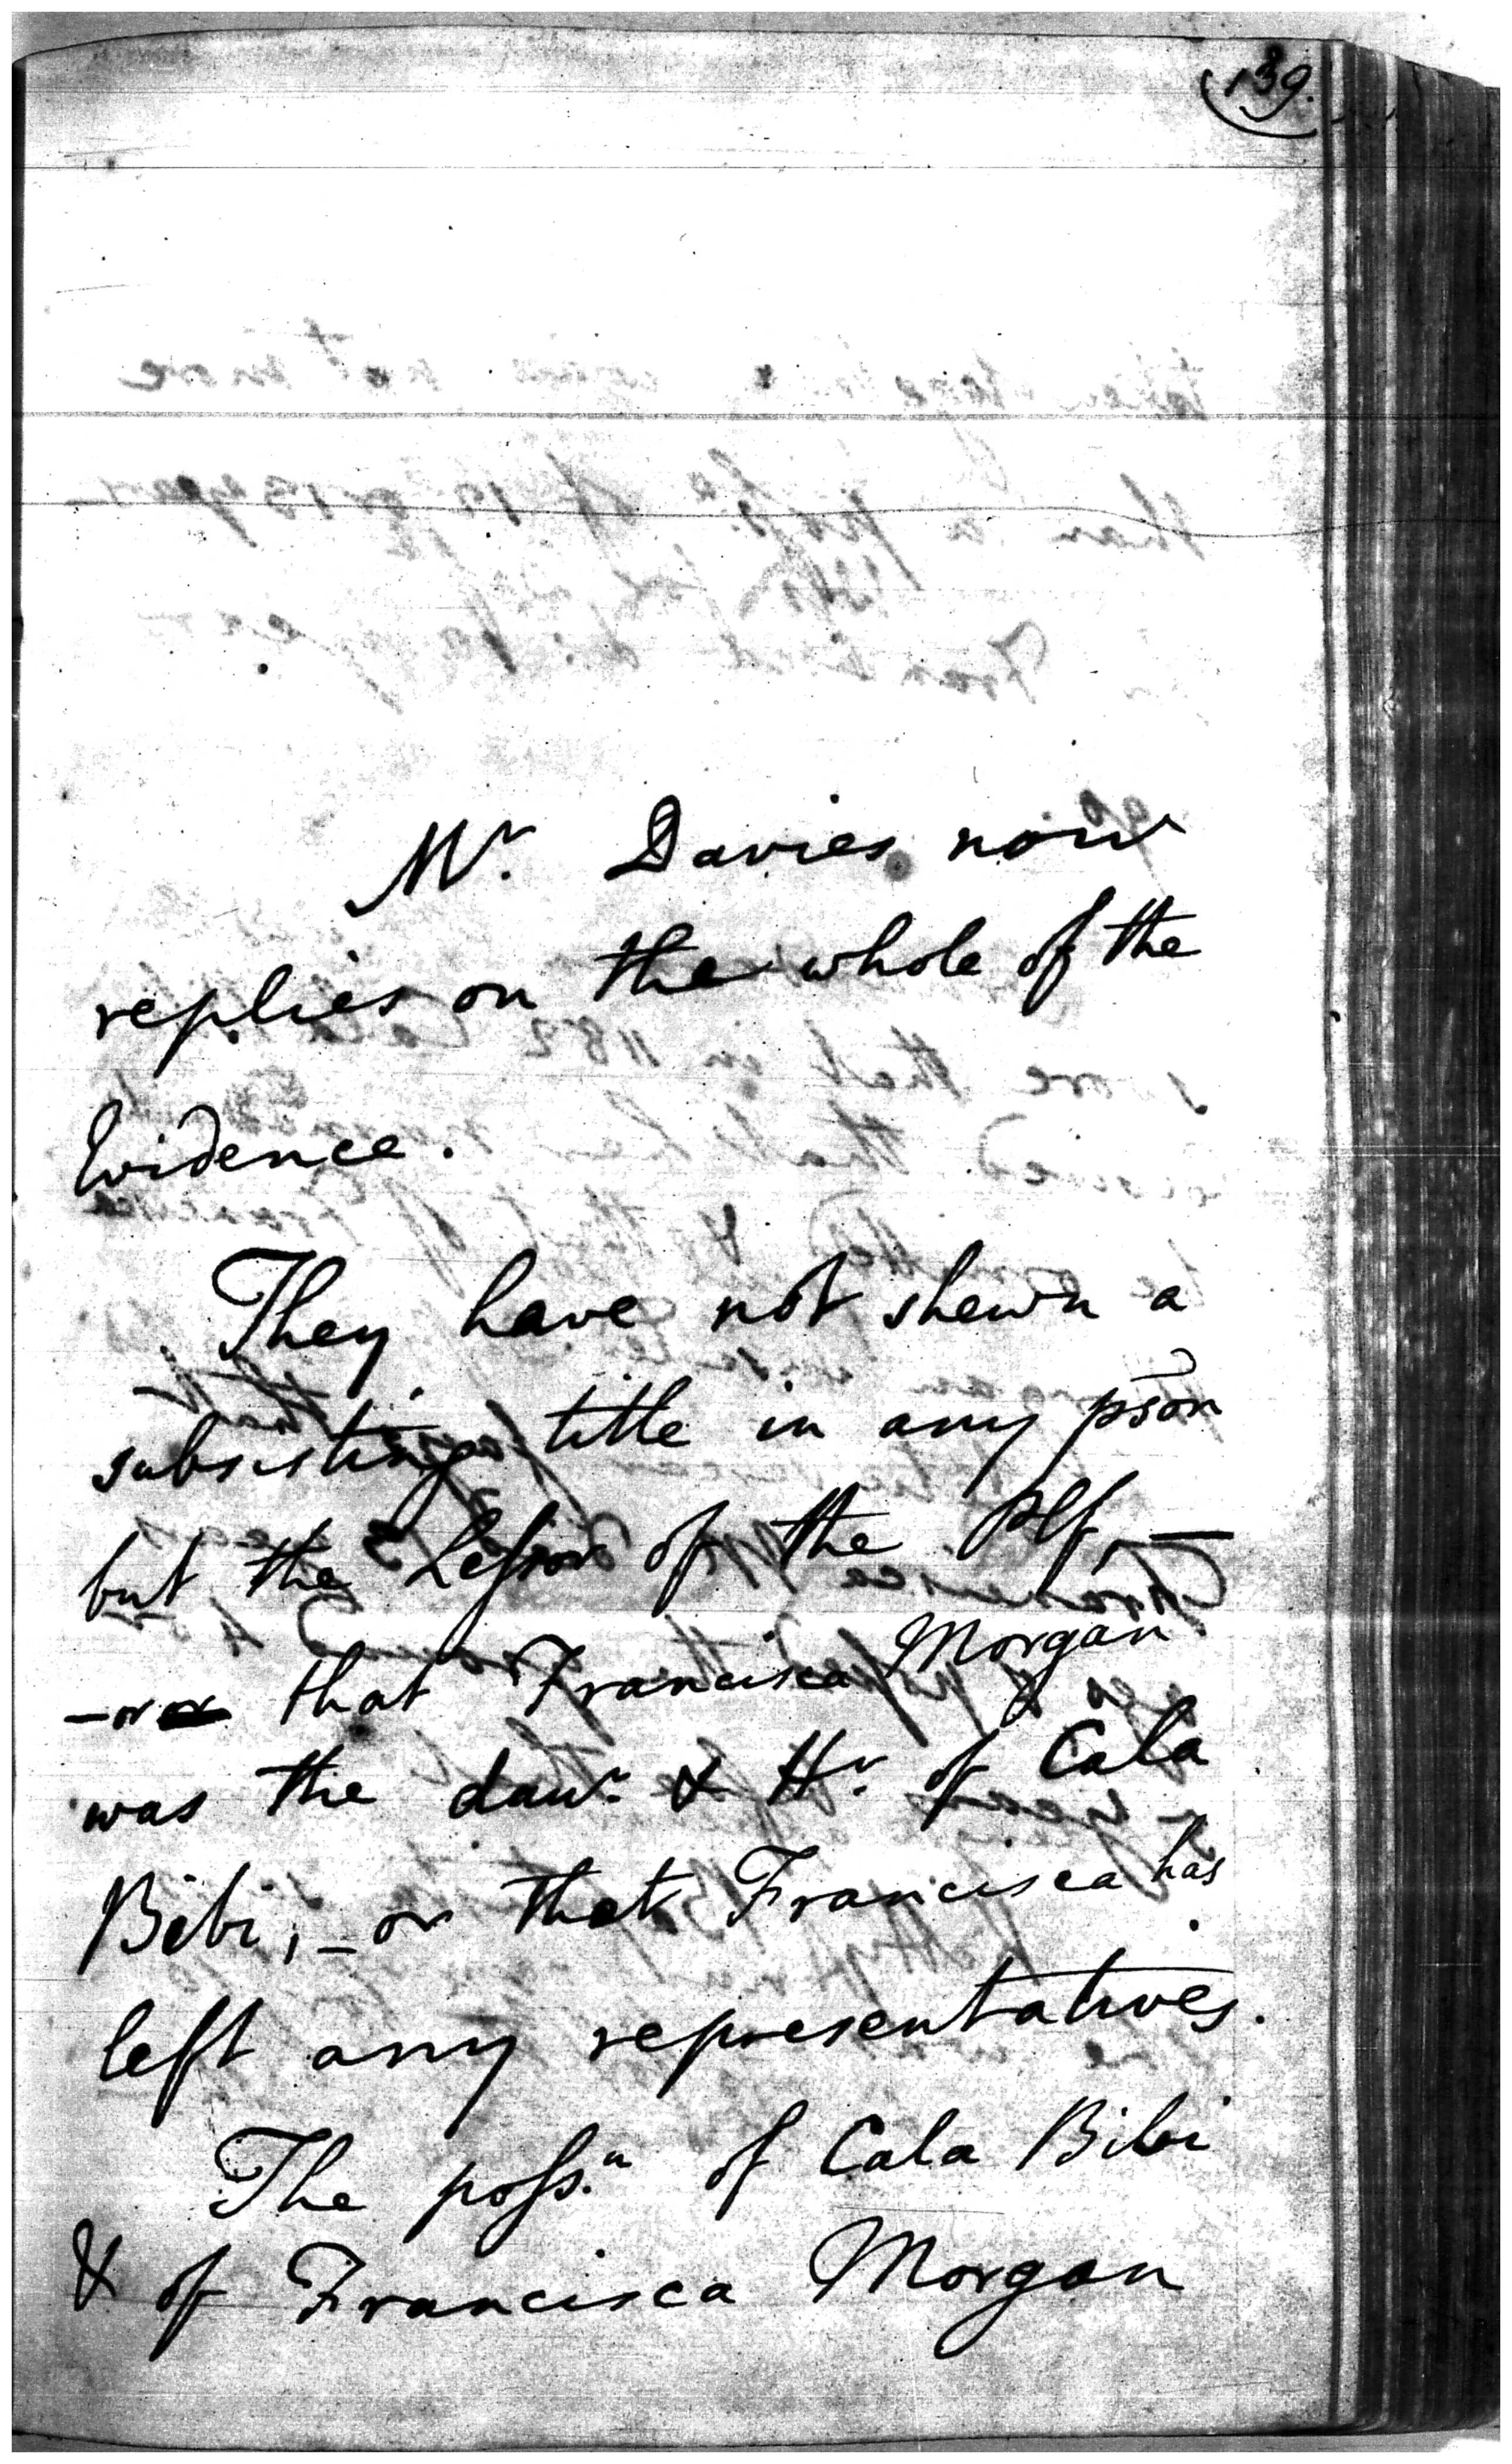 139.
Mr. Davies now
replies on the whole of the
Evidence.
They have not shewn a
subsisting title in any pson
but the Lessor of the Plf, —
— or that Francisca Morgan
was the daur. & Hr. of Cala
Bibi, — or that Francisca has
left any representatives.
The possn. of Cala Bibi
& of Francisca Morgan